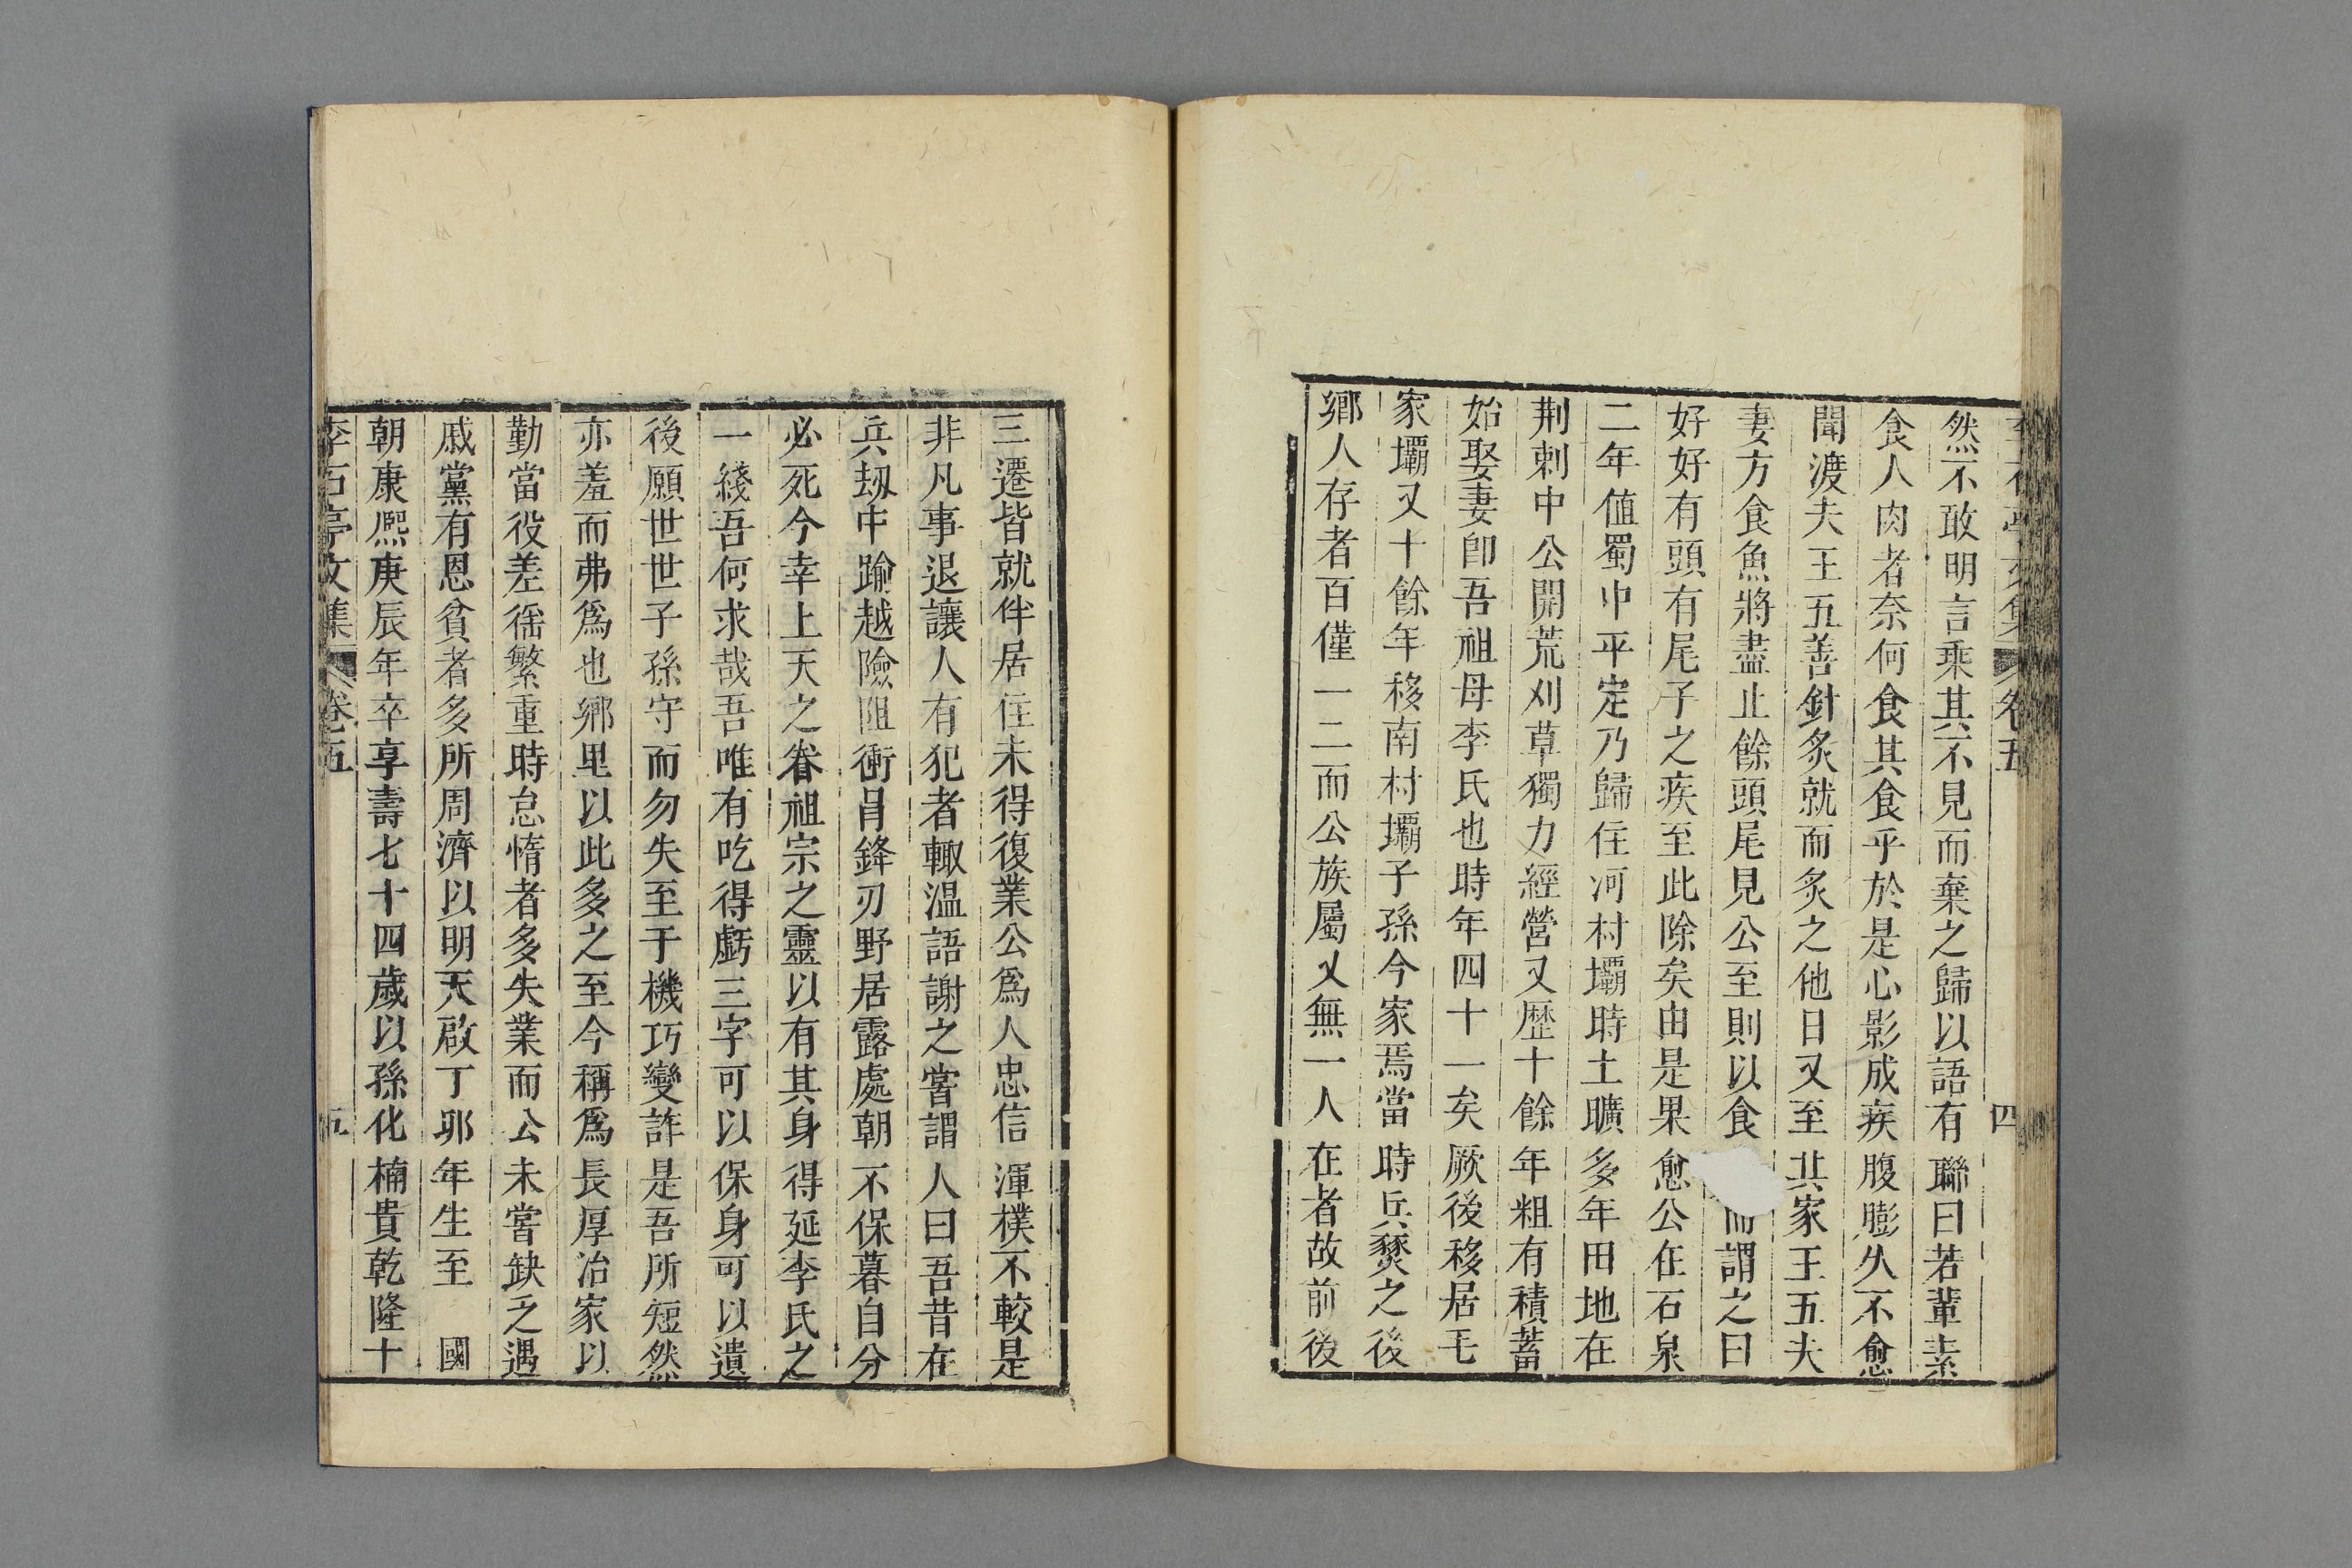 李石亭文集 卷五 四
然不敢明言乘其不見而棄之歸以語有聯曰若輩素
食人肉者奈何食其食乎於是心影成疾腹膨久不愈
聞渡夫王五善針炙就而炙之他日又至其家王五夫
妻方食魚將盡止餘頭尾見公至則以食而謂之曰
好好有頭有尾子之疾至此除矣由是果愈公在石泉
二年值蜀中平定乃歸住河村壩時土曠多年田地在
荆刺中公開荒刈草獨力經營又歷十餘年粗有積蓄
始娶妻卽吾祖母李氏也時年四十一矣厥後移居毛
家壩又十餘年移南村壩子孫今家焉當時兵燹之後
鄉人存者百僅一二而公族屬又無一人在者故前後
三遷皆就伴居住未得復業公爲人忠信渾樸不較是
非凡事退讓人有犯者輙温語謝之嘗謂人曰吾昔在
兵刼中踰越險阻衝冐鋒刃野居露處朝不保暮自分
必死今幸上天之眷祖宗之靈以有其身得延李氏之
一綫吾何求哉吾唯有吃得虧三字可以保身可以遺
後願世世子孫守而勿失至于機巧變詐是吾所短然
亦羞而弗爲也鄉里以此多之至今稱爲長厚治家以
勤當役差徭繁重時怠惰者多失業而公未嘗缺乏遇
戚黨有恩貧者多所周濟以明天啟丁卯年生至 國
朝康熙庚辰年卒享壽七十四歲以孫化楠貴乾隆十
李石亭文集 卷五 五